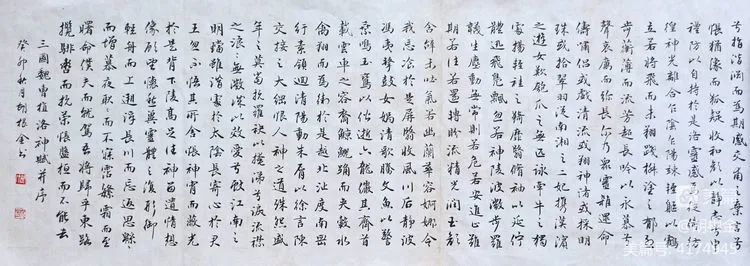 兮指潛淵而為期感交甫之棄言兮
悵猶豫而狐疑收和顏以靜志申
禮防以自持於是洛靈感焉徙倚彷
徨神光離合乍陰乍陽竦輕軀以鶴
立若將飛而未翔踐椒塗之郁烈
步蘅薄而流芳超長吟以永慕兮
聲哀厲而彌長爾乃眾靈雜遝命
儔嘯侶或戲清流或翔神渚或採明
珠或拾翠羽從南湘之二妃攜漢濱
之遊女歎匏瓜之無匹詠牽牛之獨
處揚輕袿之猗靡翳脩袖以延佇
體迅飛鳧飄忽若神陵波微步羅
襪生塵動無常則若危若安進止難
期若往若還轉眄流精光潤玉顏
含辭未吐氣若幽蘭華容婀娜令
我忘飡於是屏翳收風川后靜波
馮夷擊鼓女媧清歌騰文魚以警
乘鳴玉鸞以偕逝六龍儼其齊首
載雲車之容裔鯨鯢踊而夾轂水
禽翔而為衛於是越北沚度南岡
行素領迴清陽動朱唇以徐言陳
交接之大綱恨人神之道殊怨盛
年之莫當抗羅袂以掩涕兮淚流襟
之浪浪無微深以效愛兮獻江南之
明璫雖潛處於太陰長寄心於君
王忽不悟其所舍悵神宵而蔽光
於是背下陵高足往神留遺情想
像顧望懷愁冀靈體之復形御
輕舟而上遡浮長川而忘返思緜緜
而增慕夜耿而不寐霑繁霜而至
曙命僕夫而就駕吾將歸乎東路
攬騑轡而抗策悵盤桓而不能去
三國魏曹植洛神賦并序
癸卯秋月胡根金書